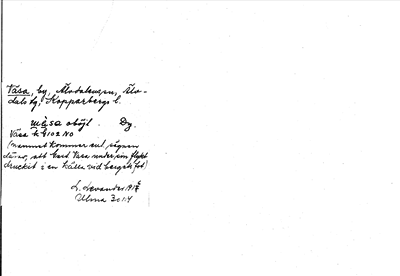 Väsa, by, Älvdalens sn, Älv-
dals tg, Kopparbergs l.
våsa oböjl. Dy.
Väsa k 9102 NO
(namnet kommer enl. sägnen
därav, att Gust. Vasa under sin flykt
druckit i en källa vid bergets fot)
L. Levander 1917
Ulma 301:4